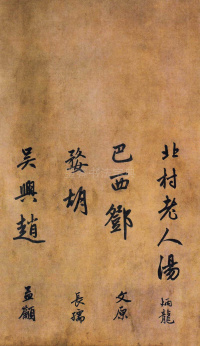 北村老人湯炳龍
巴西鄧文原
婺胡長孺
吳興趙孟頫